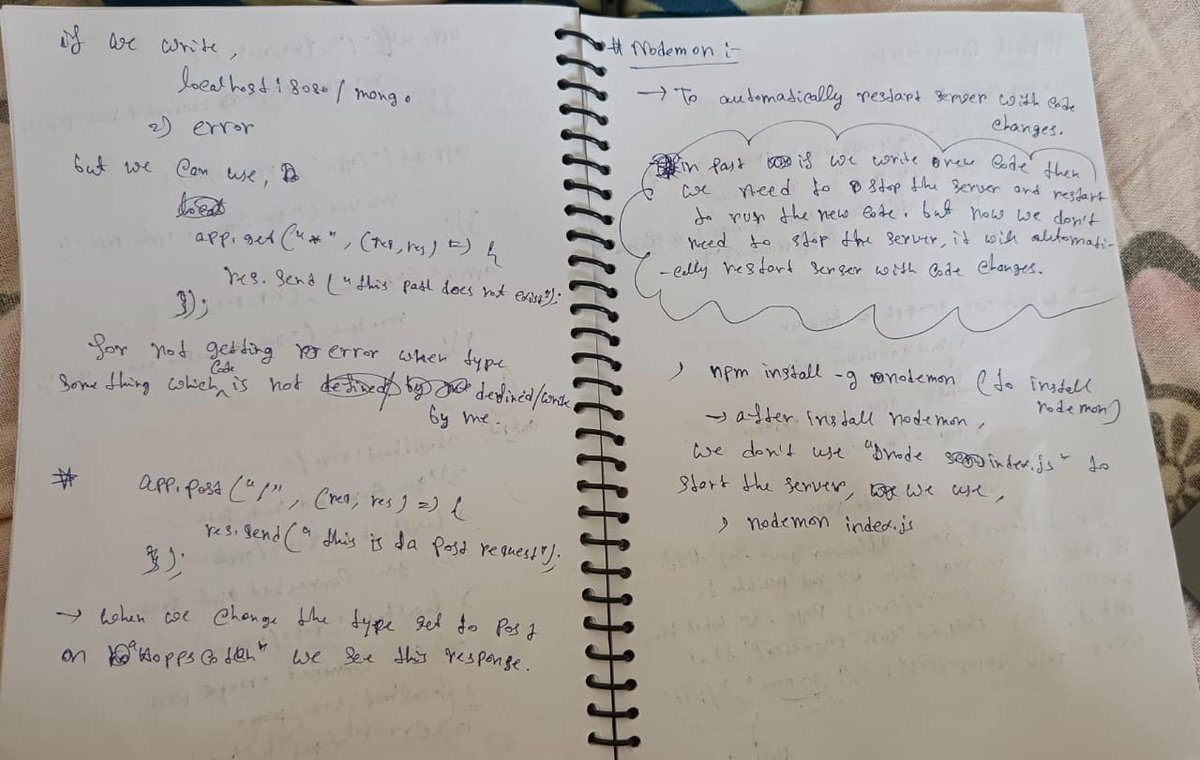 if we write,
localhost : 8080 / mongo
=) error
but we can use,
app.get ("*", (req, res) => {
res. send ("this path does not exist");
});
for not getting error when type
some thing which code is not defined/write
by me.
# app. post ("/", (req, res) => {
res. send ("this is a post request");
});
→ when we change the type get to post
on "Hoppscotch" we see this response.
# Nodemon :-
→ To automatically restart server with code
changes.
in past if we write new code then
we need to stop the server and restart
to run the new code. but now we don't
need to stop the server, it will automati-
-cally restart server with code changes.
> npm install -g nodemon (to install
nodemon)
→ after install nodemon,
we don't use "node index.js" to
start the server, we use,
> nodemon index.js